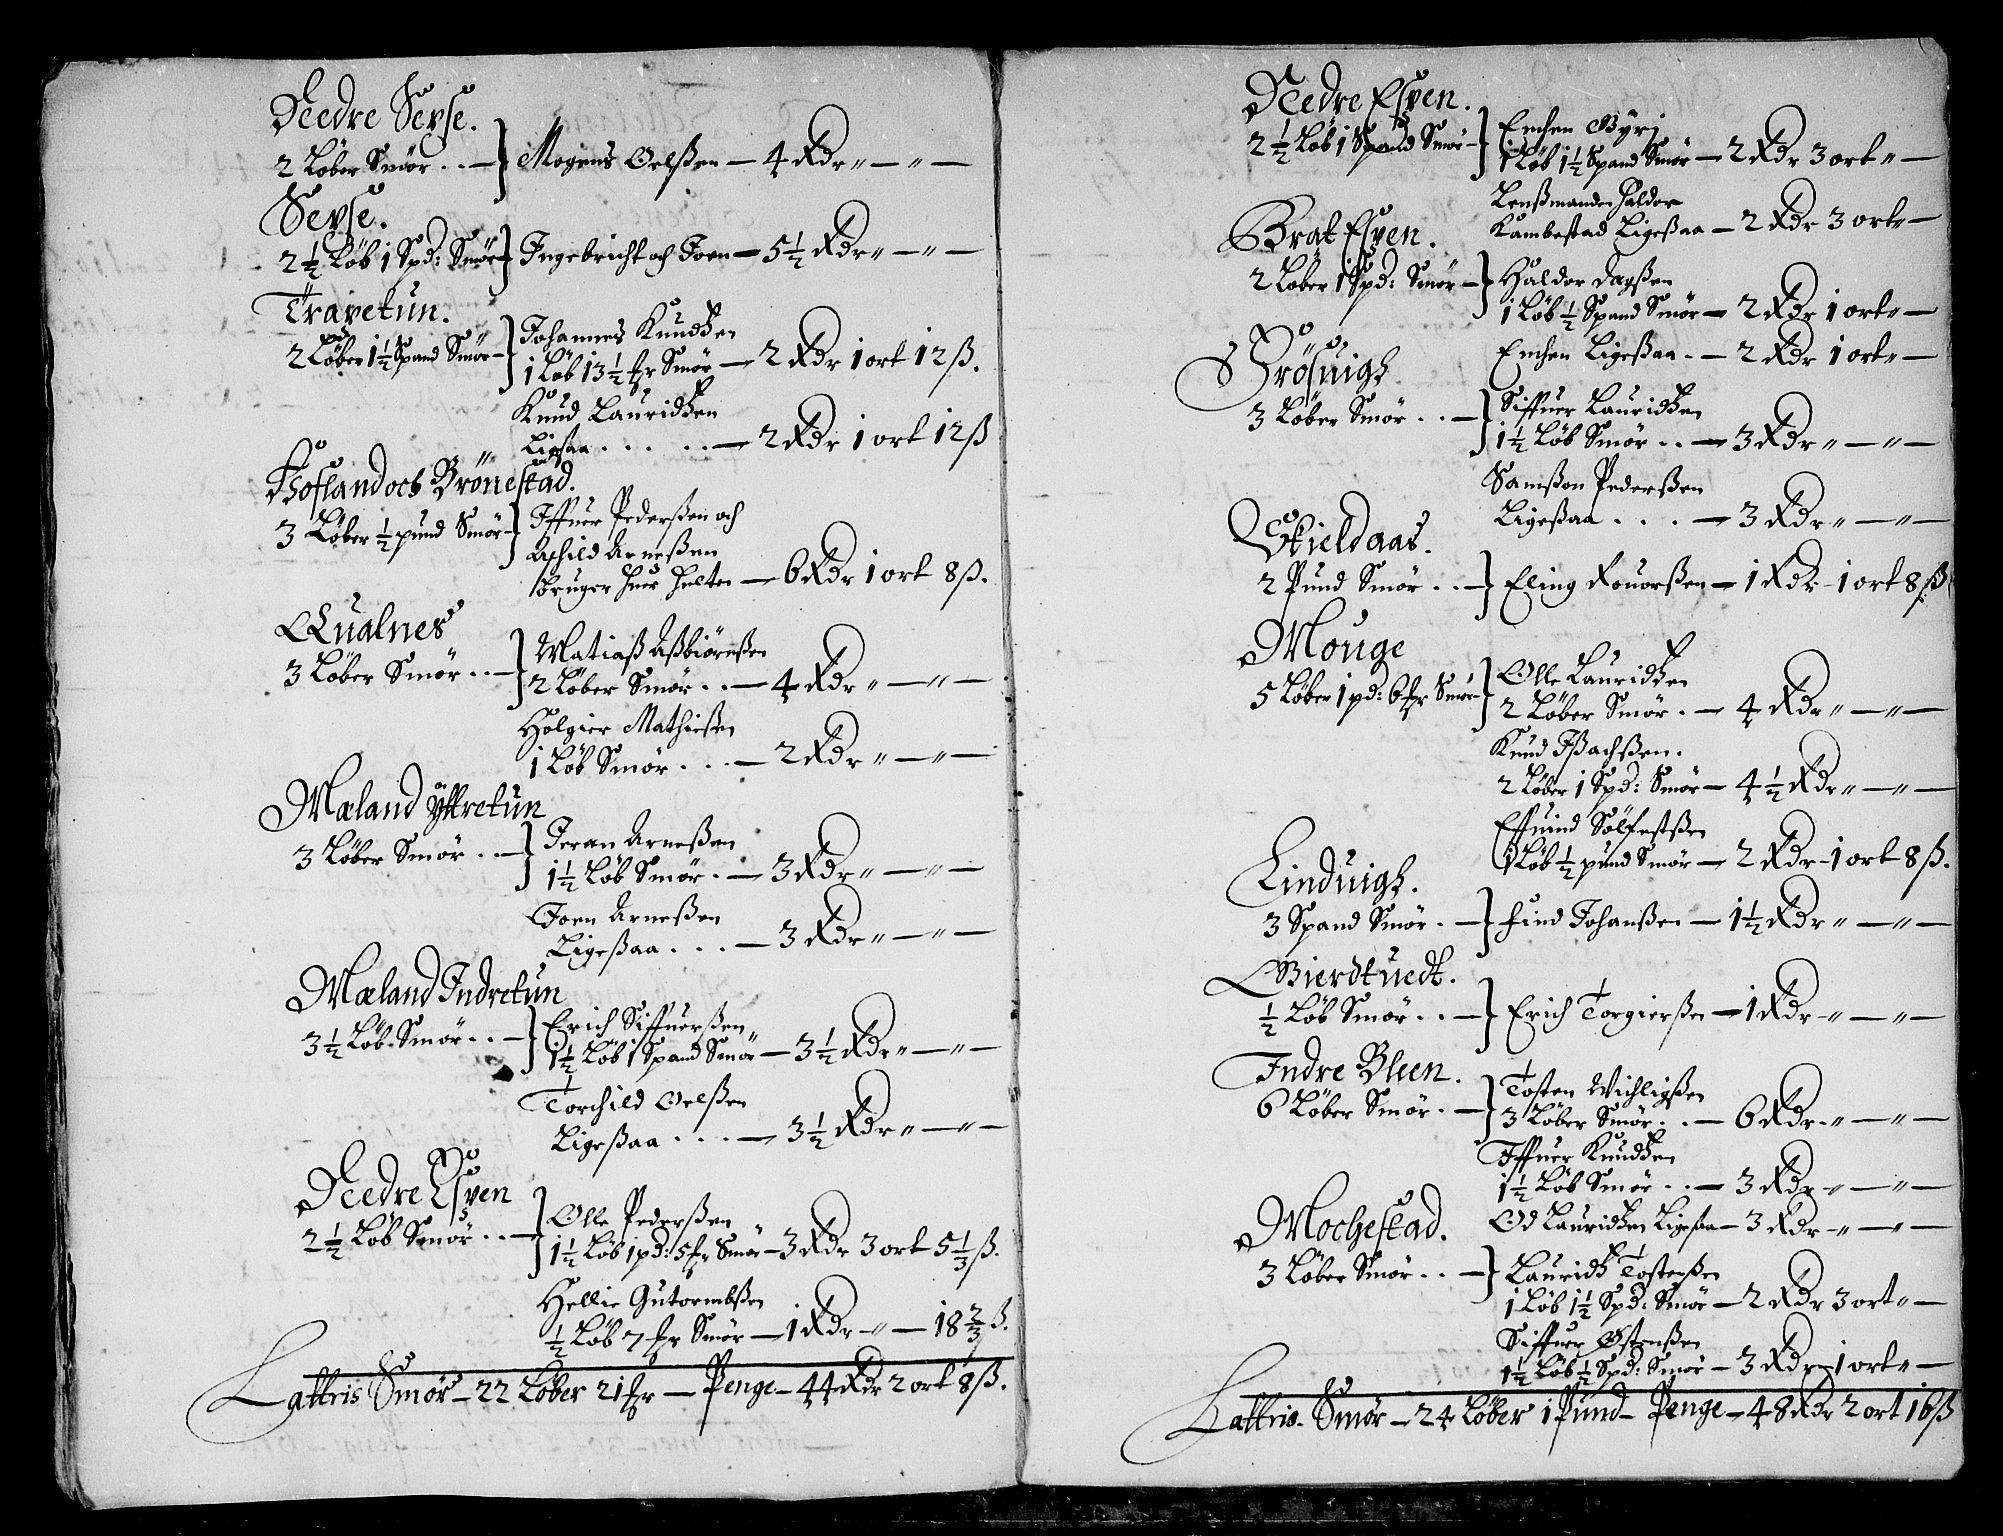 Nedre Sevse.
2 Løber Smör . . — } Mogens Oelßen — 4 Rdr „ — „ —
Sevse.
2½ Løb 1 Spd: Smör } Ingebricht och Joen — 5½ Rdr „ — „ —
Travetun.
2 Løber 1½ Spand Smör — } Johannes Knudßen
1 Løb 13½ mr Smör — 2 Rdr 1 ort 12 ß.
Knud Lauridßen
Ligesaa . . . . . — 2 Rdr 1 ort 12 ß
Hofland och Brönestad.
3 Løber ½ pund Smör — } Iffuer Pederßen och
Aschild Arneßen
bruger huer helten — 6 Rdr 1 ort 8 ß.
Qualnes
3 Løber Smör . . — } Matiaß Aßbiörnßen
2 Løber Smör . . — 4 Rdr „ — „ —
Holgier Mathießen
1 Løb Smör . . . — 2 Rdr „ — „ —
Mæland Ÿttretun
3 Løber Smör . . — } Jeran Arneßen
1½ Løb Smör . — 3 Rdr „ — „ —
Joen Arneßen
Ligeßaa . . . — 3 Rdr „ — „ —
Mæland Indretun
3½ Løb Smör . . — } Erich Siffuerßen
1½ Løb 1 Spand Smör — 3½ Rdr „ — „ —
Torchild Oelßen
Ligeßaa . . . — 3½ Rdr „ — „ —
Nedre Esven
2½ Løb Smör . . — } Olle Pederßen
1½ Løb 1 pd: 5 mr Smör — 3 Rdr 3 ort 5⅓ ß.
Hellie Gutormbßen
½ Løb 7 mr Smör — 1 Rdr „ — 18⅔ ß.
Lattris Smör — 22 Løber 21 mr — Penge — 44 Rdr 2 ort 8 ß.
Nedre Esven.
2½ Løb 1 Spand Smör — } Emchen Byri
1 Løb 1½ Spand Smör — 2 Rdr 3 ort „ —
Lenßmanden Haldor
Kambestad Ligeßaa — 2 Rdr 3 ort „ —
Brat Esven.
2 Løber 1 Spd: Smör — } Haldor Dagßen
1 Løb ½ Spand Smör — 2 Rdr 1 ort „ —
Emchen Ligeßaa . . — 2 Rdr 1 ort „ —
Drösuigh
3 Løber Smör . . — } Siffuer Lauridßen
1½ Løb Smör . . — 3 Rdr „ — „ —
Samßon Pederßen
Ligeßaa . . . . — 3 Rdr „ — „ —
Skieldaas.
2 Pund Smör . . — } Eling Rouorßen — 1 Rdr — 1 ort 8 ß
Mouge
5 Løber 1 pd: 6 mr Smör — } Olle Lauridßen
2 Løber Smör . — 4 Rdr „ — „ —
Knud Ißachßen.
2 Løber 1 Spd: Smör — 4½ Rdr „ — „ —
Effuind Sölfestßen
1 Løb ½ pund Smör — 2 Rdr — 1 ort 8 ß.
Linduigh.
3 Spand Smör . — } Find Johanßen — 1½ Rdr „ — „ —
Bierdtuedt.
½ Løb Smör . . — } Erich Torgierßen — 1 Rdr „ — „ —
Indre Bleen.
6 Løber Smör . — } Tosten Wichligßen
3 Løber Smör . . — 6 Rdr „ — „ —
Iffuer Knudßen
1½ Løb Smör . . — 3 Rdr „ — „ —
Od Lauridßen Ligesaa — 3 Rdr „ — „ —
Mochestad.
3 Løber Smör . . — } Lauridß Tostenßen
1 Løb 1½ Spd: Smör — 2 Rdr 3 ort „ —
Siffuer Östenßen
1½ Løb ½ Spd: Smör — 3 Rdr — 1 ort „ —
Lattris. Smör — 24 Løber 1 Pund — Penge — 48 Rdr 2 ort 16 ß